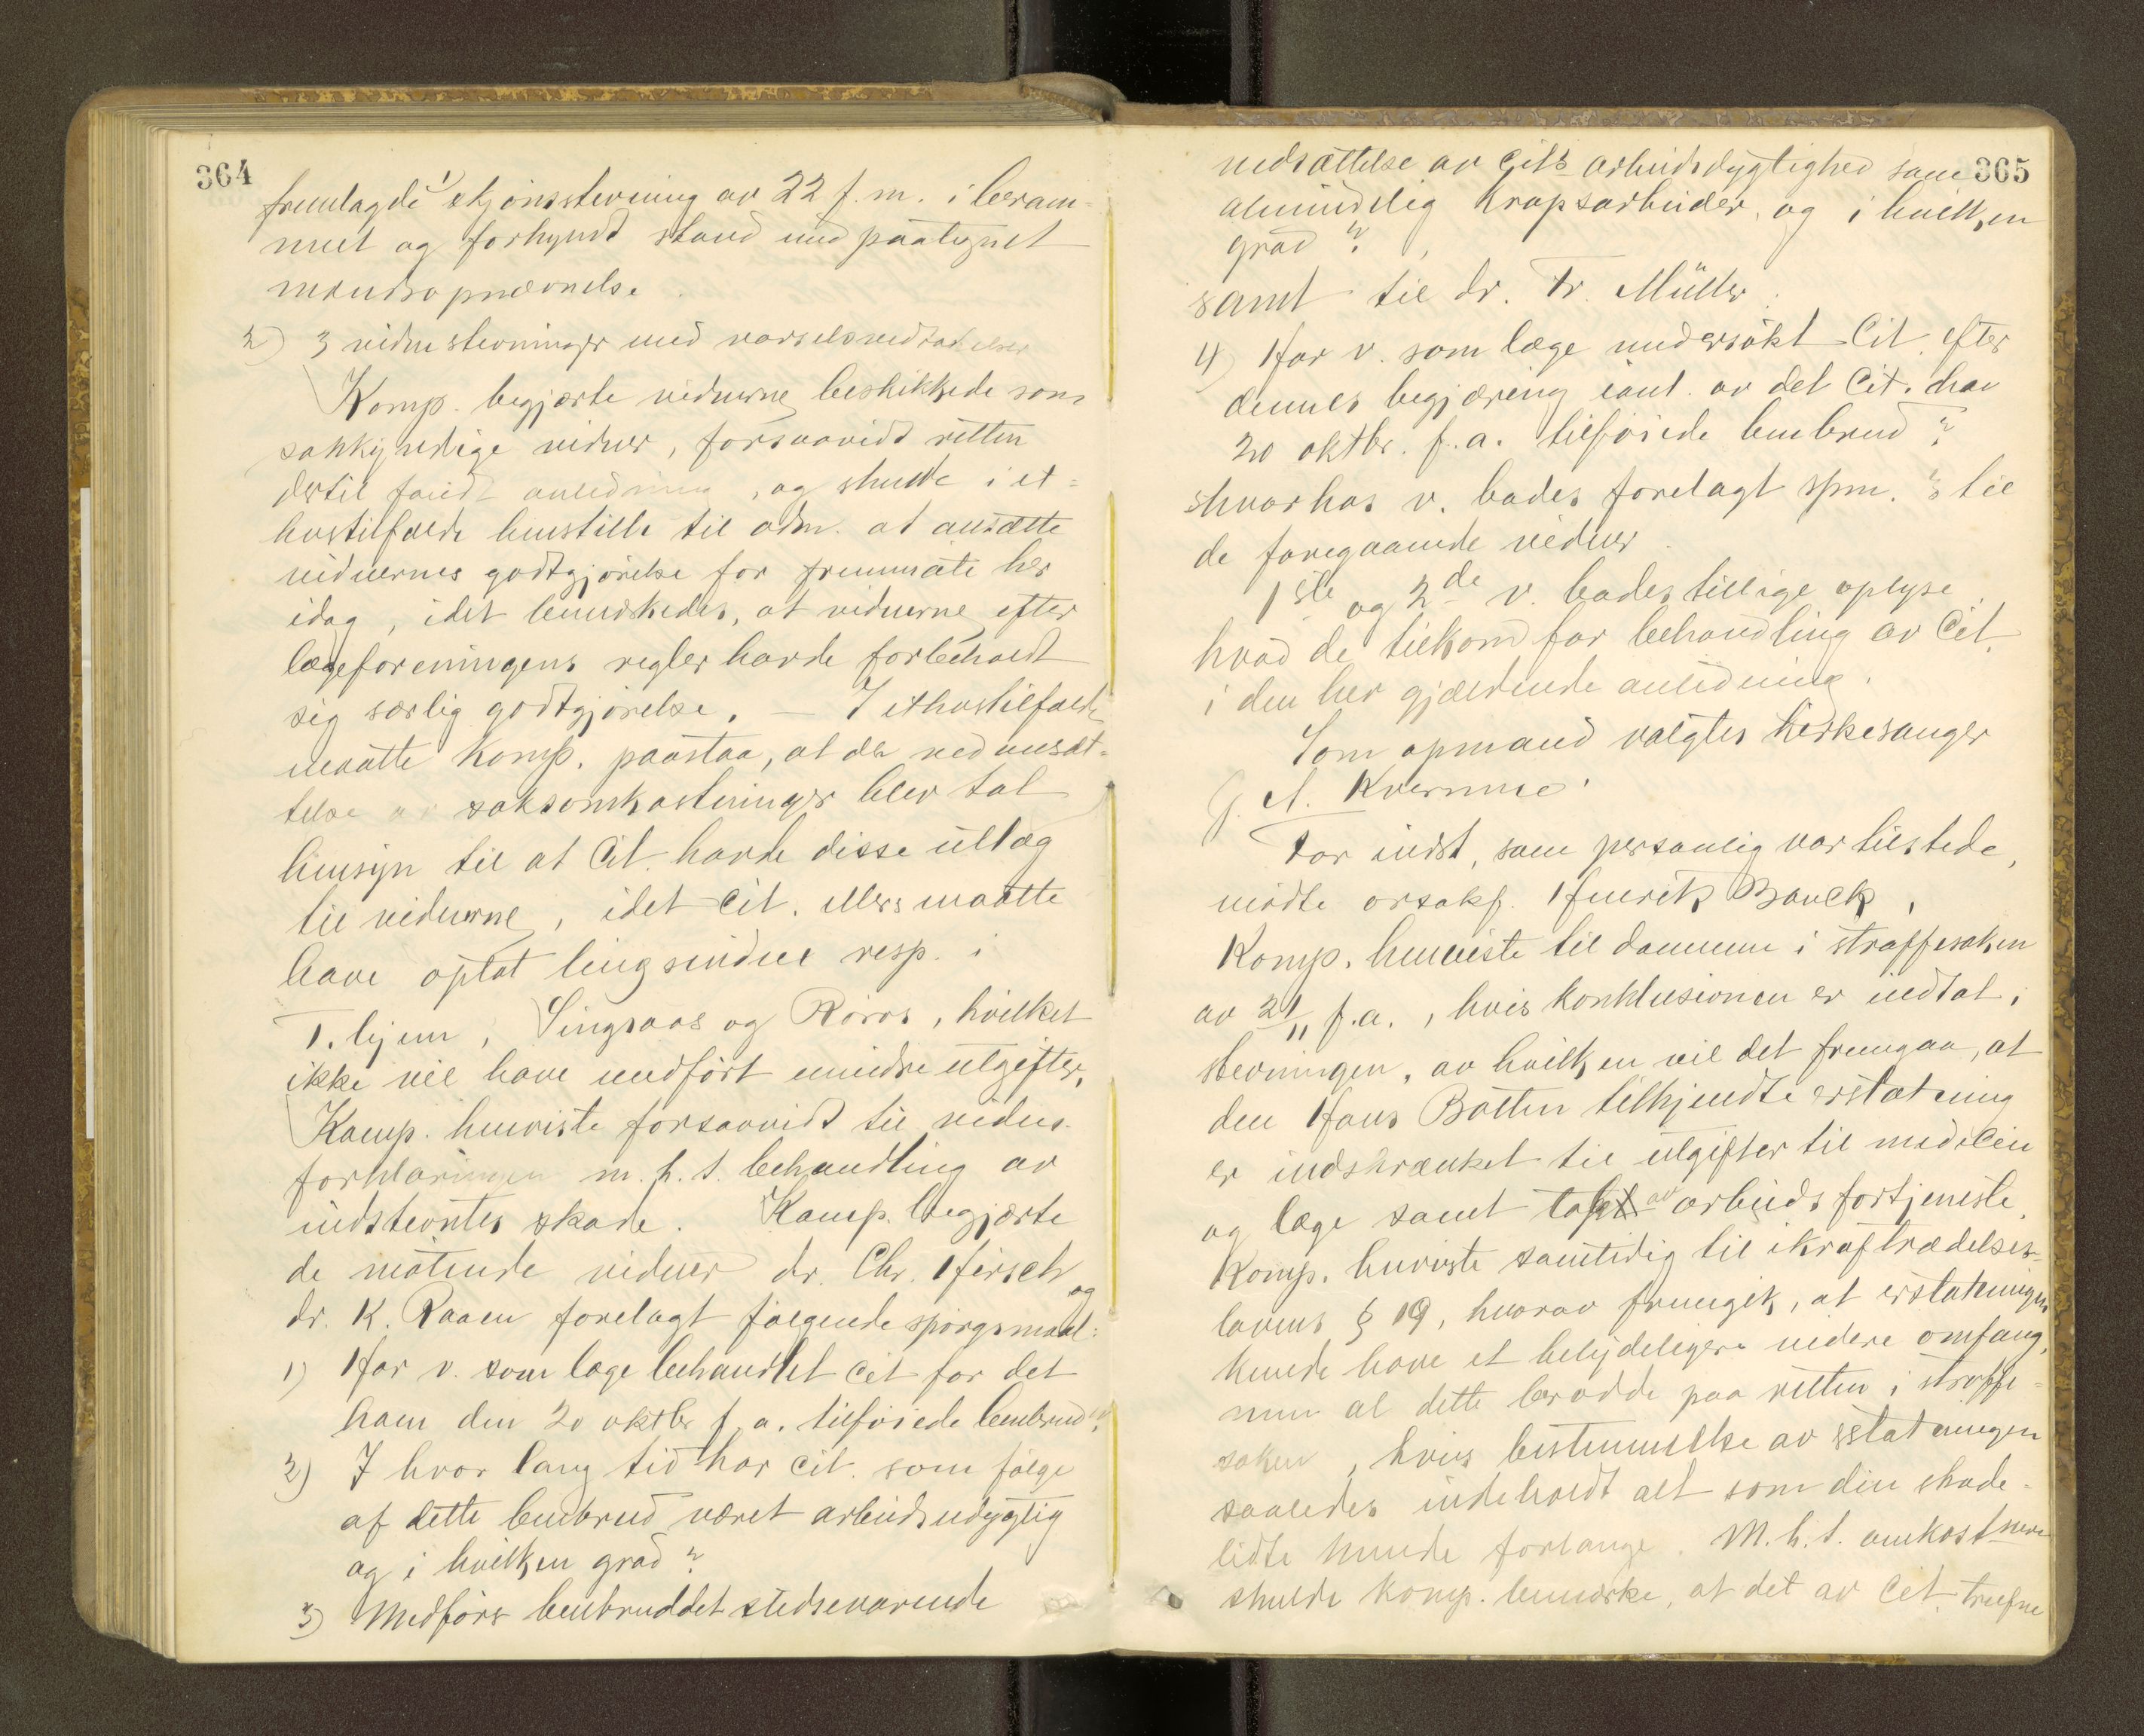 364
fremlagde 1) skjönsstevning av 22 f. m. i beram-
met og forkyndt stand med paategnet
mandsopnævnelse.
2) 3 vidnestevninger med varselsvedtagelser
Komp. begjærte vidnerne beskikkede som
sakkyndige vidner, forsaavidt retten
dertil fandt anledning, og skulde i et-
hvertilfælde henstille til adm. at ansætte
vidnernes godtgjörelse for fremmöte her
idag, idet bemerkedes, at vidnerne efter
lægeforeningens regler havde forbeholdt
sig særlig godtgjörelse. — I ethvertilfælde
maatte Komp. paastaa, at der ved ansæt-
telse av saksomkostninger blev tat
hensyn til at Cit. havde disse utlæg
til vidnerne, idet Cit. ellers maatte
have optat tingsvidner resp. i
T.hjem, Singsaas og Röros, hvilket
ikke vil have medfört mindre utgifter.
Komp. henviste forsaavidt til vidne-
forklaringen m. h. t. behandling av
indstevntes skade. Komp. begjærte
de mötende vidner dr. Chr. Hirsch og
dr. K. Raaen forelagt fölgende spörgsmaal:
1) Har v. som læge behandlet Cit for det
ham den 20 oktbr f. a. tilföiede benbrud?
2) I hvor lang tid har Cit. som fölge
af dette benbrud været arbeidsudygtig
og i hvilken grad?
3) Medförer benbruddet stedsevarende
365
nedsættelse av Cits arbeidsdygtighed som
almindelig kropsarbeider, og i hvilken
grad?
samt til dr. Fr. Müller
4) Har v. som læge undersökt Cit. efter
dennes begjæring i anl. av det Cit. den
20 oktbr. f. a. tilföiede benbrud?
hvorhos v. bades forelagt spm. 3 til
de foregaaende vidner.
1ste og 2de v. bades tillige oplyse
hvad de tilkom for behandling av Cit.
i den her gjældende anledning.
Som opmand valgtes kirkesanger
G. A. Kvernmo.
For indst, som personlig var tilstede,
mödte orsakf. Henrik Bauck.
Komp. henviste til dommen i straffesaken
av 21/11 f.a., hvis konklusionen er indtat i
stevningen, av hvilken vil det fremgaa, at
den Hans Botten tilkjendte erstatning
er indskrænket til utgifter til medicin
og læge samt tapt av arbeidsfortjeneste.
Komp. henviste samtidig til ikrafttrædelses-
lovens § 19, hvorav fremgik, at erstatningen
kunde have et betydeligere videre omfang,
men at dette berodde paa retten i straffe-
saken, hvis bestemmelse av erstatningen
saaledes indeholdt alt som den skade-
lidte kunde forlange. M. h. t. omkostnene
skulde Komp. bemærke, at det av Cit. trufne